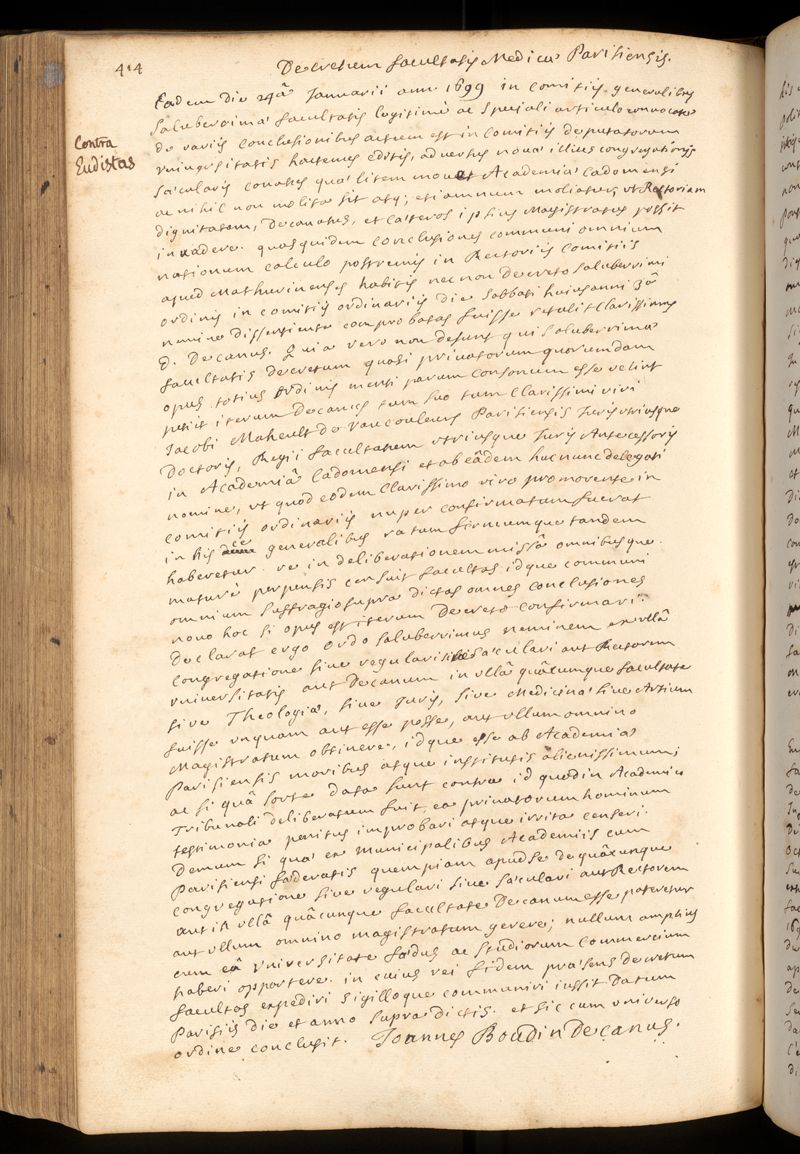 414
Decretum facultatis Medicæ Parisiensis.
Contra
Eudistas
Eadem die 29â Januarii ann. 1699 in comitiis generalibus
Saluberrimæ facultatis legitimè ac speciali articulo convocatæ
de variis conclusionibus actum est in comitiis deputatorum
vniuersitatis hactenus editis, aduersus nouæ illius congregationis
sæcularis conatus quæ litem mouet Academiæ Cadomensi
ac nihil non molita sit atq; etiamnum moliatur vt Rectoriam
dignitatem, Decanatus, et cæteros ipsius Magistratus possit
inuadere. quas quidem conclusiones communi omnium
nationum calculo postremis in Rectoriis Comitiis
apud Mathurinenses habitis nec non Decreto saluberrimi
ordinis in comitiis ordinariis die sabbati huius anni 3â
nemine dissentiente comprobatas fuisse retulit Clarissimus
D. Decanus. Quia vero non desunt qui saluberrimæ
facultatis decretum quasi priuatorum quorumdam
opus totius ordinis menti parum consonum esse velint
petiit iterum Decanus tum suo tum Clarissimi viri
Jacobi Maheult de Vaucouleurs Parisiensis Juris vtriusque
Doctoris, Regii facultatum vtriusque Juris Antecessoris
in Academiâ Cadomensi et ab eâdem huc nunc delegati
nomine, vt quod eodem Clarissimo viro promovente in
comitiis ordinariis nuper confirmatum fuerat
in his generalibus ratum firmumque tandem
haberetur. re in deliberationem missâ omnibusque
maturè perpensis censuit facultas idque communi
omnium suffragio supra dictas omnes conclusiones
nouo hoc si opus est iterum Decreto confirmari:
Declarat ergo ordo saluberrimus neminem ex vllâ
congregatione siue regulari siue sæculari aut Rectorem
vniuersitatis aut Decanum in vllâ quâcumque facultate
siue Theologiæ, siue Juris, siue Medicinæ siue Artium
fuisse vnquam aut esse posse, aut vllum omnino
Magistratum obtinere, idque esse ab Academiæ
Parisiensis moribus atque institutis alienissimum;
ac si quâ sorte data sunt contra id quod in Academico
Tribunali deliberatum fuit ea priuatorum hominum
testimonia penitus improbari atque irrita censeri.
Demum si qua ex municipalibus Academiis cum
Parisiensi fæderatis quempiam apud se de quâcunque
congregatione siue regulari siue sæculari aut Rectorem
aut in vllâ quâcunque facultate Decanum esse pateretur
aut vllum omnino magistratum gerere; nullum amplius
cum eâ Vniuersitate fædus ac studiorum commercium
haberi opportere. in cuius rei fidem præsens decretum
facultas expediri sigilloque communiri iussit Datum
Parisiis die et anno supra dictis. et sic cum vniuerso
ordine conclusit. Joannes Boudin Decanus.